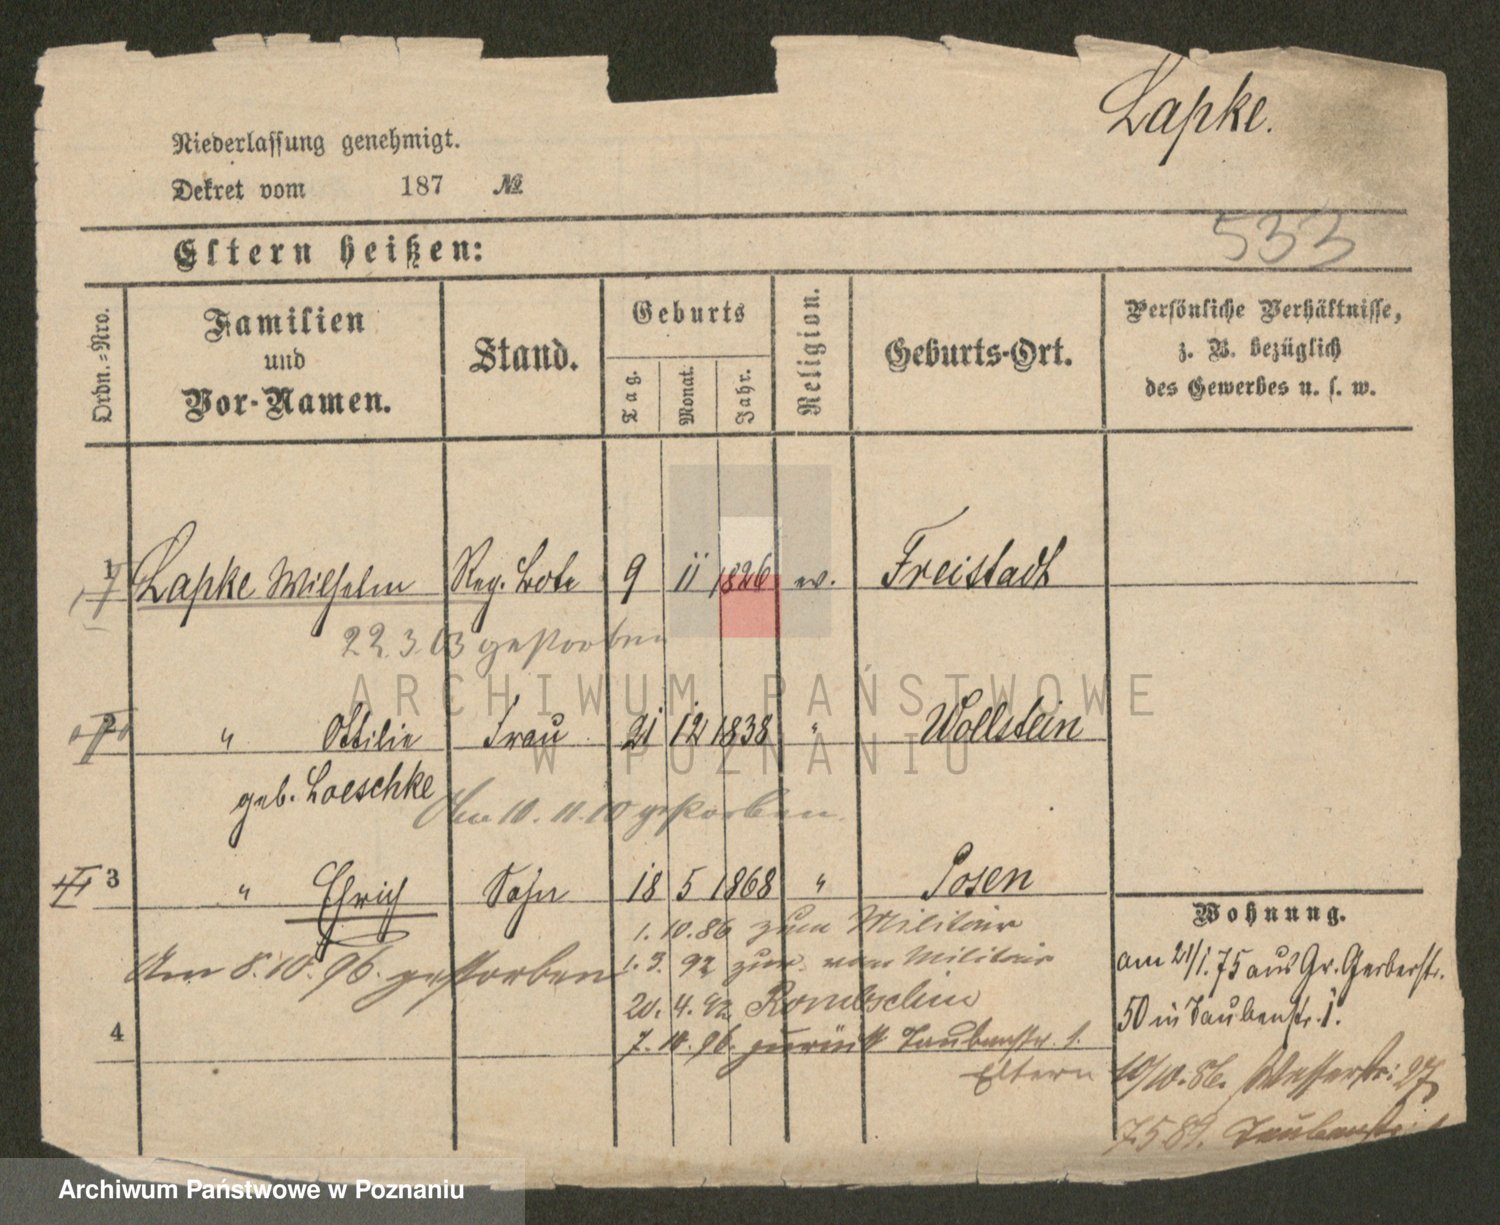 Lapke.
Niederlassung genehmigt.
Dekret vom 187 №
533
Eltern heißen:
Ordn.-Nro.
Familien und Vor-Namen.
Stand.
Geburts
Tag.
Monat.
Jahr.
Religion.
Geburts-Ort.
Persönliche Verhältnisse,
z. B. bezüglich
des Gewerbes u. s. w.
1 Lapke Wilhelm Reg. Bote 9 11 1826 ev. Freistadt
22.3.03 gestorben
2 " Ottilie Frau 21 12 1838 " Wollstein
geb. Loeschke
Am 10.11.10 gestorben.
3 " Ehrich Sohn 18 5 1868 " Posen
1.10.86 zum Militair
Am 8.10.96. gestorben
1.3.92 zur. vom Militair
20.4.92
4
7.10.96. zurück Taubenstr. 1.
Eltern
Wohnung.
am 21/1.75 aus Gr. Gerberstr.
50 in Taubenstr. 1.
10/10.86. Wasserstr: 27
7.5.89. Taubenstr: 1
ARCHIWUM PAŃSTWOWE
W POZNANIU
Archiwum Państwowe w Poznaniu